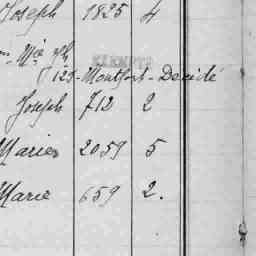 Joseph 1825 4
Mie Jh
EXEMPTE
125 - Montfort - Decidé
Joseph 712 2
Marie 2059 5
Marie 659 2.